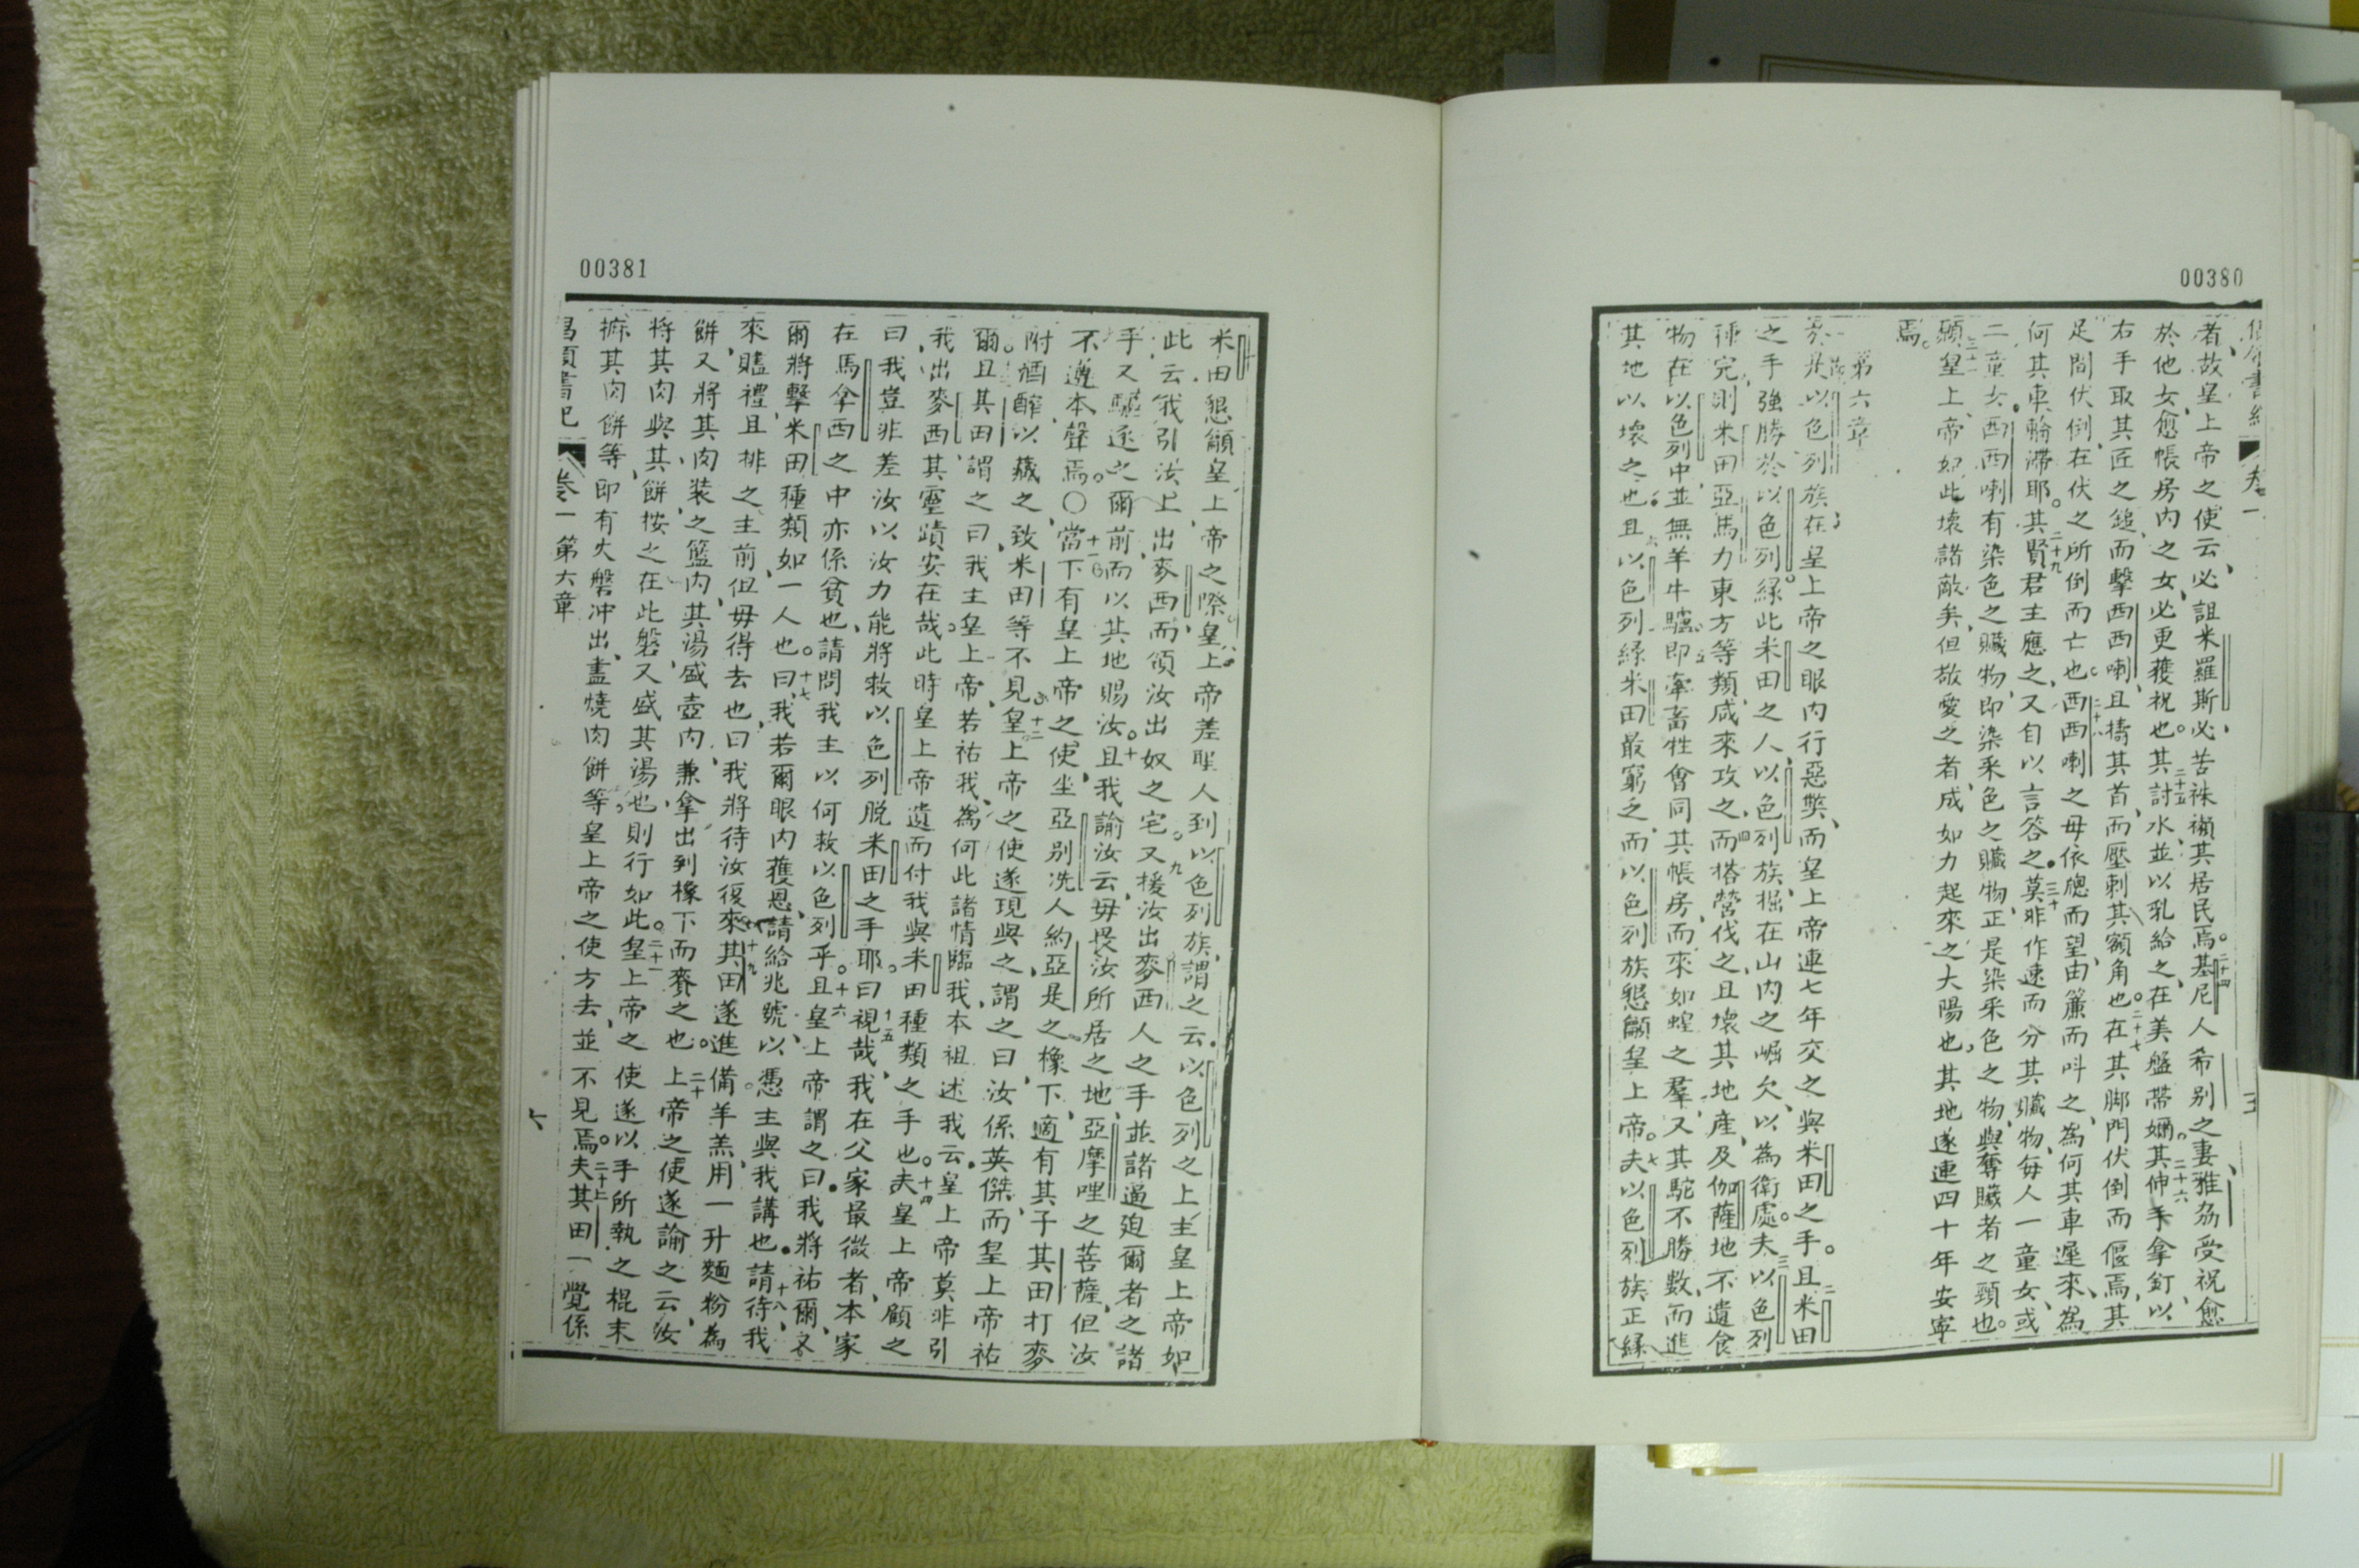 00380
者故皇上帝之使云必詛米羅斯必苦誅殞其居民焉二十四基尼人希别之妻雅劦受祝愈
於他女愈帳房内之女必更獲祝也二十五其討水並以乳給之在美盤帶嬭二十六其伸手拿釘以
右手取其匠之鎚而擊西西喇且擣其首而壓剌其額角也二十七在其脚門伏倒而偃焉其
足間伏倒在伏之所倒而亡也二十八西西喇之母依牕而望由簾而呌之為何其車遲來為
何其車輪滯耶二十九其賢君主應之又自以言答之三十莫非作速而分其贓物毎人一童女或
二童女西西喇有染色之贓物即染釆色之贓物正是染釆色之物與奪贓者之頸也
三十一願皇上帝如此壞諸敵矣但敬愛之者成如力起來之大陽也其地遂連四十年安寜
焉
第六章
於此以色列族在皇上帝之眼内行惡獘而皇上帝連七年交之與米田之手二且米田
之手強勝於以色列緣此米田之人以色列族掘在山内之崛穴以為衛處三夫以色列
種完則米田亞馬力東方等類咸來攻之四而搭營伐之且壞其地產及伽薩地不遺食
物在以色列中並無羊牛驢五即牽畜牲會同其帳房而來如蝗之羣又其駝不勝數而進
其地以壞之也六且以色列緣米田最窮乏而以色列族懇龥皇上帝七夫以色列族正緣
00381
米田懇龥皇上帝之際八皇上帝差聖人到以色列族謂之云以色列之上主皇上帝如
此云我引汝上出麥西而領汝出奴之宅九又援汝出麥西人之手並諸逼迫爾者之諸
手又驅逐之爾前而以其地賜汝十且我諭汝云毋畏汝所居之地亞摩哩之菩薩但汝
不遵本聲焉〇十一當下有皇上帝之使坐亞别冼人約亞是之橡下適有其子其田打麥
附酒醡以藏之致米田等不見十二皇上帝之使遂現與之謂之曰汝係英傑而皇上帝祐
爾且其田謂之曰我主皇上帝若祐我為何此諸情臨我本祖述我云皇上帝莫非引
我出麥西其靈蹟安在哉此時皇上帝遺而付我與米田種類之手也十四夫皇上帝顧之
曰我豈非差汝以汝力能將救以色列脱米田之手耶十五曰視哉我在父家最微者本家
在馬拿西之中亦係貧也請問我主以何救以色列乎十六且皇上帝謂之曰我將祐爾
爾將擊米田種類如一人也十七曰我若爾眼内獲恩請給兆號以憑主與我講也十八請待我
來贐禮且排之主前但毋得去也曰我將待汝復來十九其田遂進備羊羔用一升麵粉為
餅又將其肉裝之籃内其湯盛壺内兼拿出到橡下而賫之也二十上帝之使遂諭之云汝
將其肉與其餅按之在此磐又盛其湯也則行如此二十一皇上帝之使遂以手所執之棍末
擵其肉餅等即有火磐冲出盡燒肉餅等皇上帝之使方去並不見焉二十二夫其田一覺係
卷一 第六章